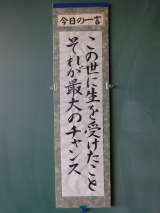 今日の一言
この世に生を受けたこと
それが最大のチャンス